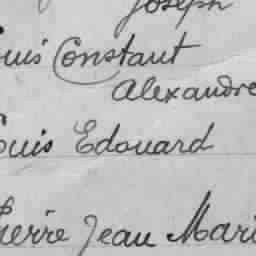 Joseph
ouis Constant
Alexandre
ouis Edouard
Pierre Jean Mari